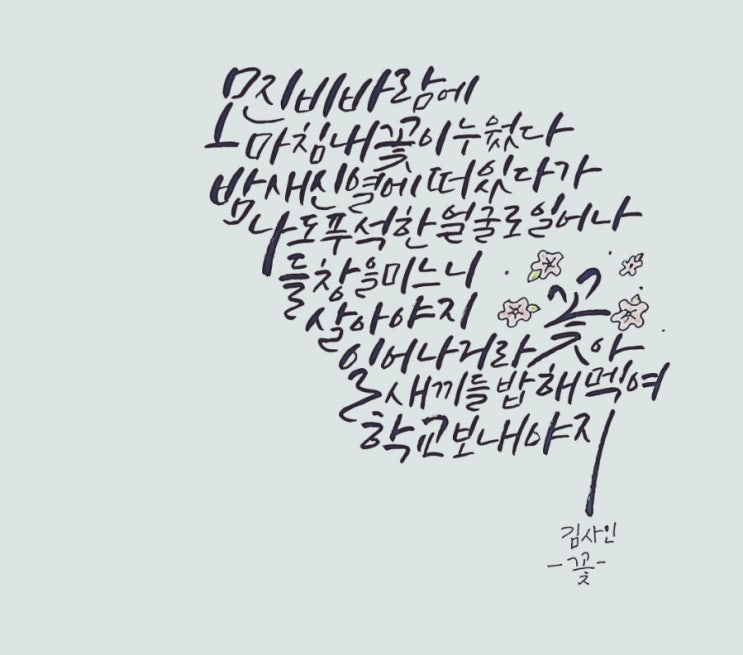 모진비바람에
마침내꽃이누웠다
밤새신열에떠있다가
나도푸석한얼굴로일어나
들창을미느니
살아야지
일어나거라꽃아
새끼들밥해먹여
학교보내야지
김사인
-꽃-